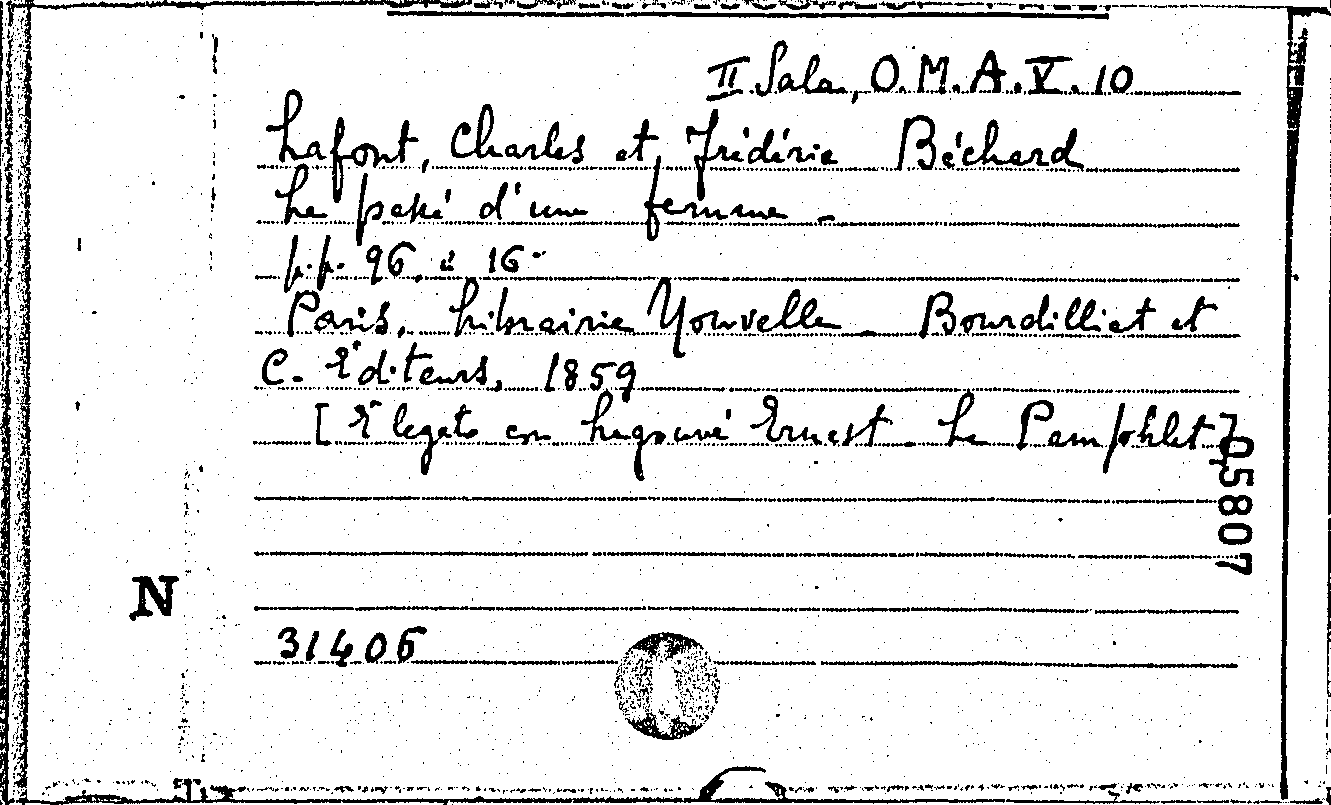 II Sala, O. M. A. V. 10
Lafont, Charles et Frédéric Béchard
Le passé d'une femme -
p.p. 96, in 16°
Paris, Librairie Nouvelle - Bourdilliat et
C. Éditeurs, 1859
[È legato con Legouvé Ernest - Le Pamphlet]
705807
N
31406